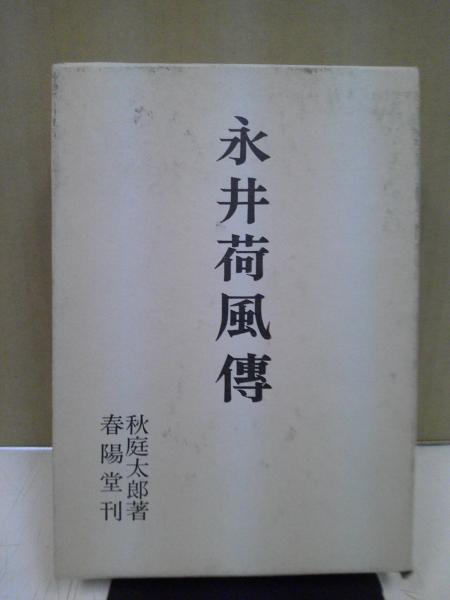 永井荷風傳
秋庭太郎著
春陽堂刊